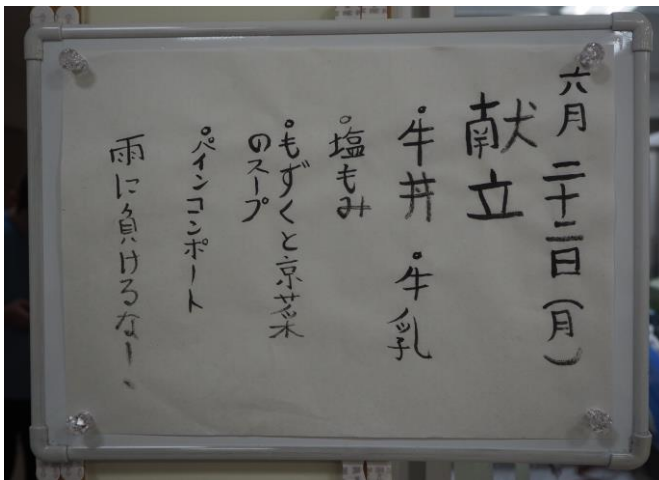 六月二十二日(月)
献立
・牛丼 ・牛乳
・塩もみ
・もずくと京菜
のスープ
・パインコンポート
雨に負けるなー、